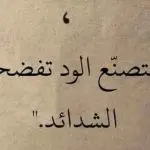 ،
تصنّع الود تفضح
الشدائد."